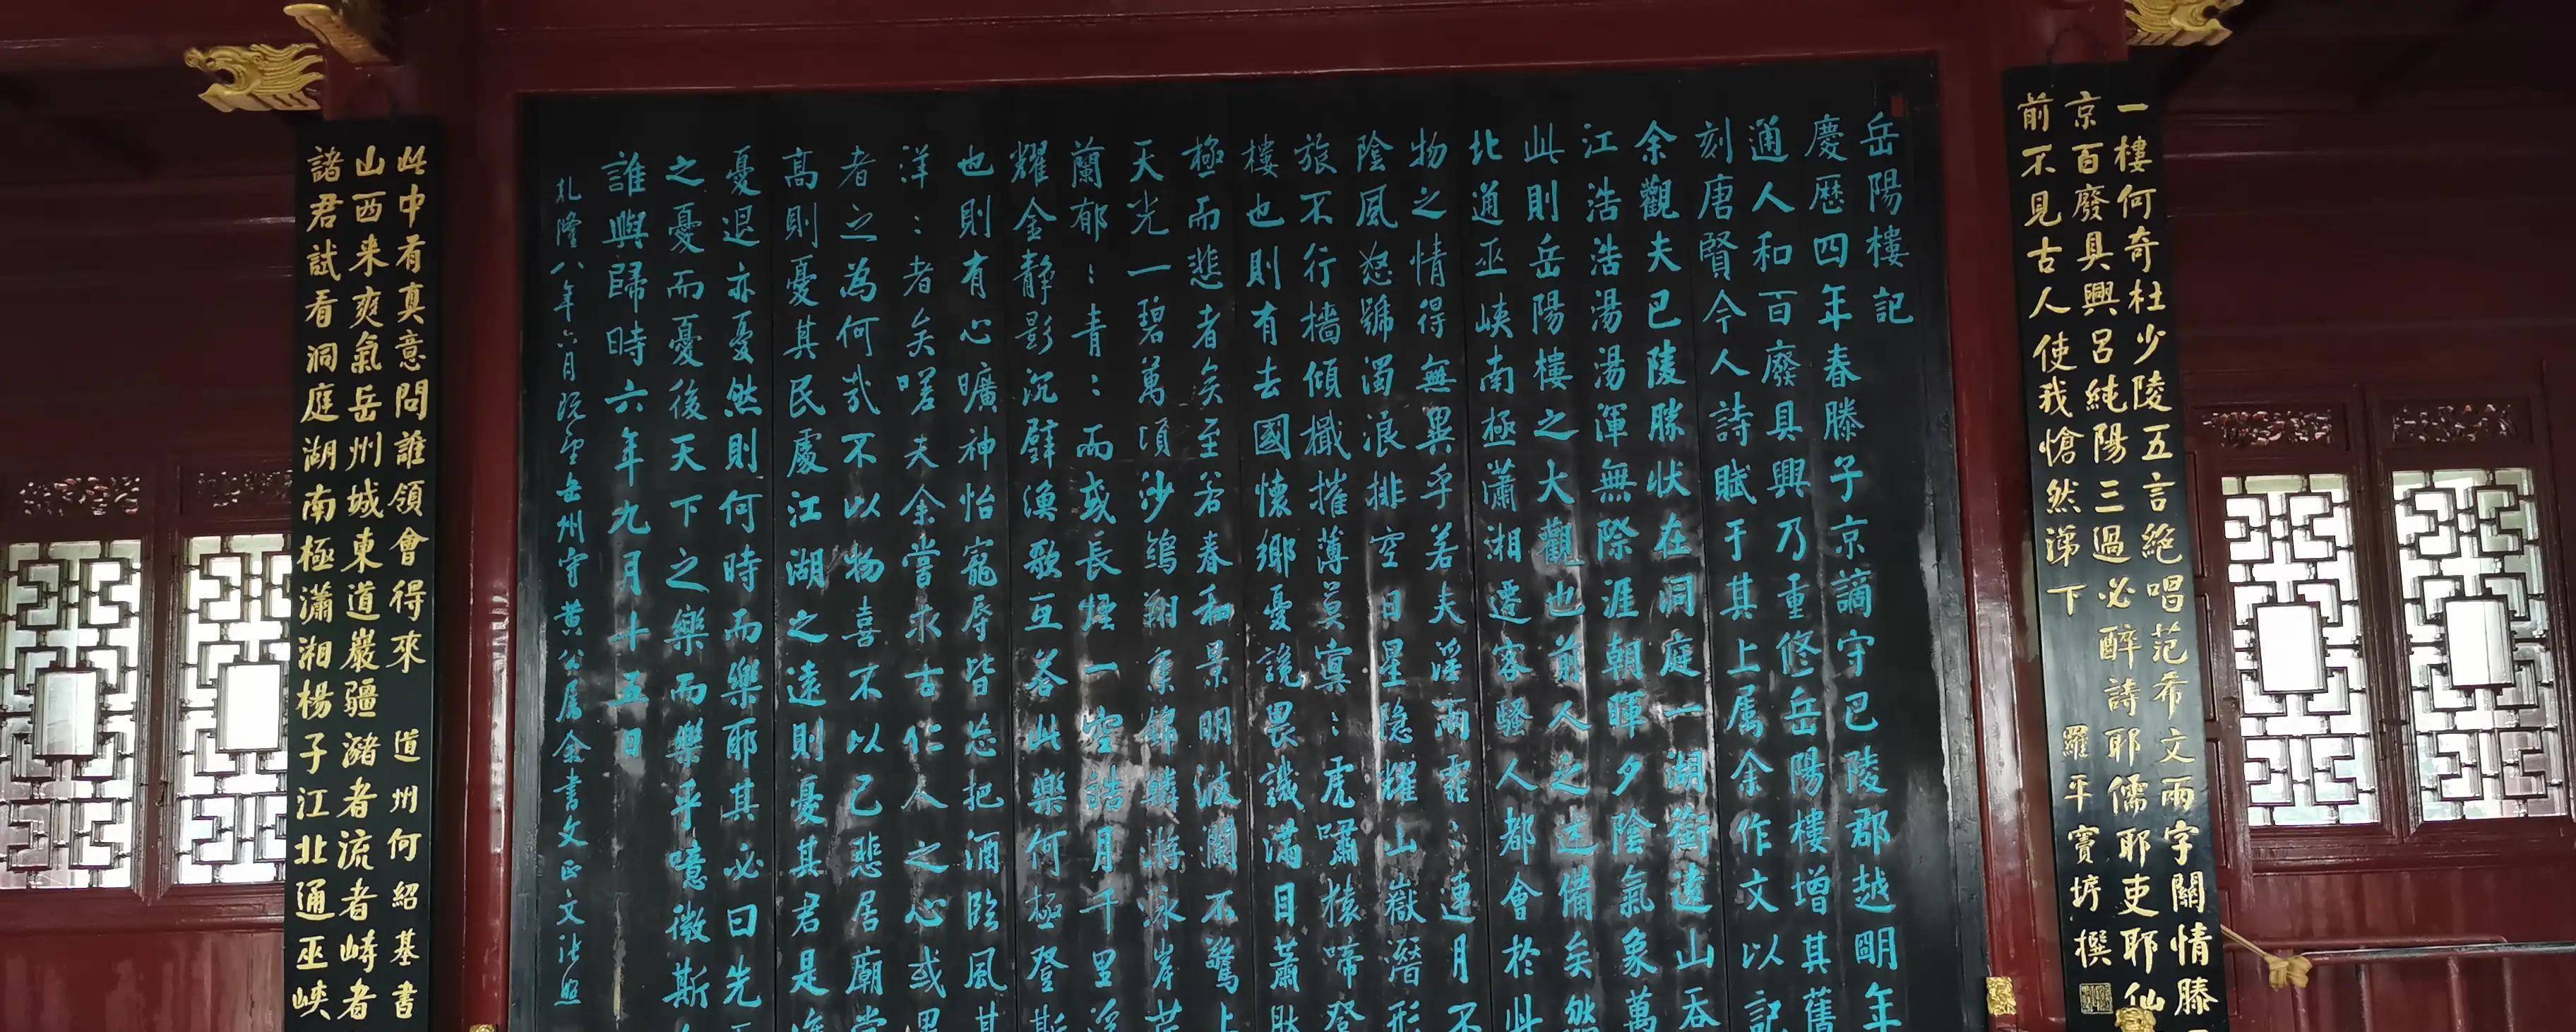 一樓何奇杜少陵五言絕唱范希文兩字關情滕
京百廢具興呂純陽三過必醉詩耶儒耶吏耶仙
前不見古人使我愴然涕下
羅平竇垿撰
岳陽樓記
慶歷四年春滕子京謫守巴陵郡越明年
通人和百廢具興乃重修岳陽樓增其舊
刻唐賢今人詩賦于其上属余作文以記
余觀夫巴陵勝状在洞庭一湖銜遠山吞
江浩浩湯湯渾無際涯朝暉夕陰氣象萬
此則岳陽樓之大觀也前人之述備矣然
北通巫峡南極瀟湘遷客騷人都會於此
物之情得無異乎若夫淫雨霏：連月不
陰風怒號濁浪排空日星隐耀山嶽潛形
旅不行檣傾檝摧薄莫冥：虎嘯猿啼登
樓也則有去國懷鄉憂讒畏譏滿目蕭
極而悲者矣至若春和景明波瀾不驚上
天光一碧萬頃沙鷗翔集錦鱗游泳岸芷
蘭郁：青：而或長煙一空皓月千里浮
耀金靜影沉璧漁歌互答此樂何極登斯
也則有心曠神怡寵辱皆忘把酒臨風其
洋：者矣嗟夫余嘗求古仁人之心或異
者之為何哉不以物喜不以己悲居廟堂
髙則憂其民處江湖之遠則憂其君是進
憂退亦憂然則何時而樂耶其必曰先
之憂而憂後天下之樂而樂乎噫微斯
誰與歸時六年九月十五日
乹隆八年六月 岳州守黄公属余書文正文 張照
此中有真意問誰領會得來
道州何紹基書
山西来爽氣岳州城東道巖疆瀦者流者峙者
諸君試看洞庭湖南極瀟湘楊子江北通巫峽